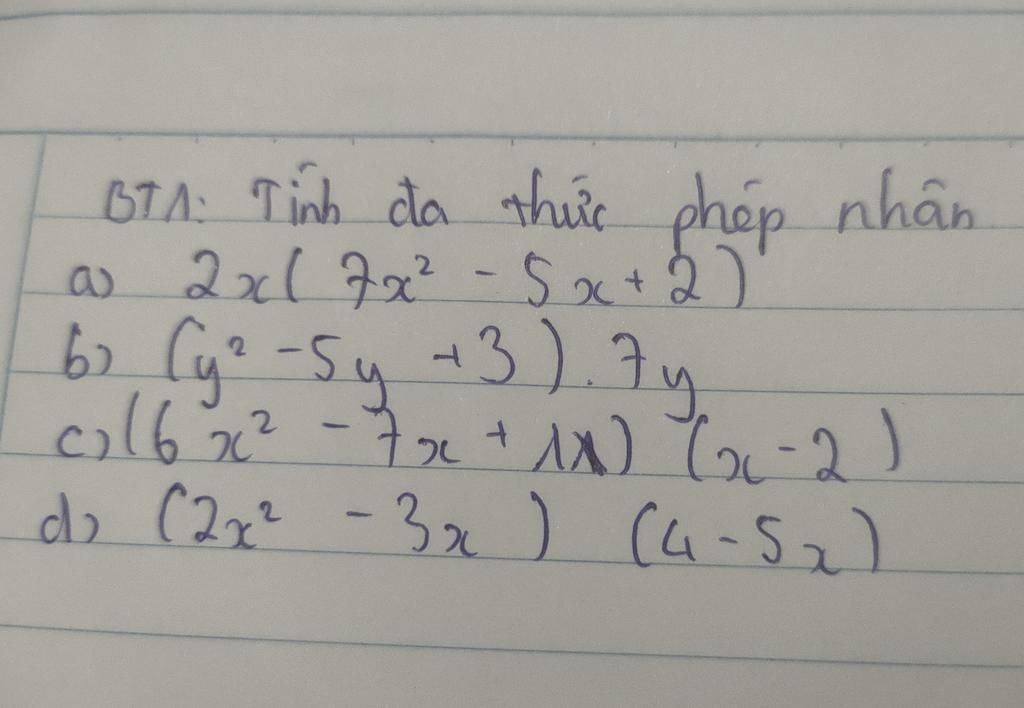 BT1: Tính đa thức phép nhân
a) 2x( 7x² - 5x + 2)
b) (y² - 5y + 3) . 7y
c) (6x² - 7x + 11) (x - 2)
d) (2x² - 3x) (4 - 5x)